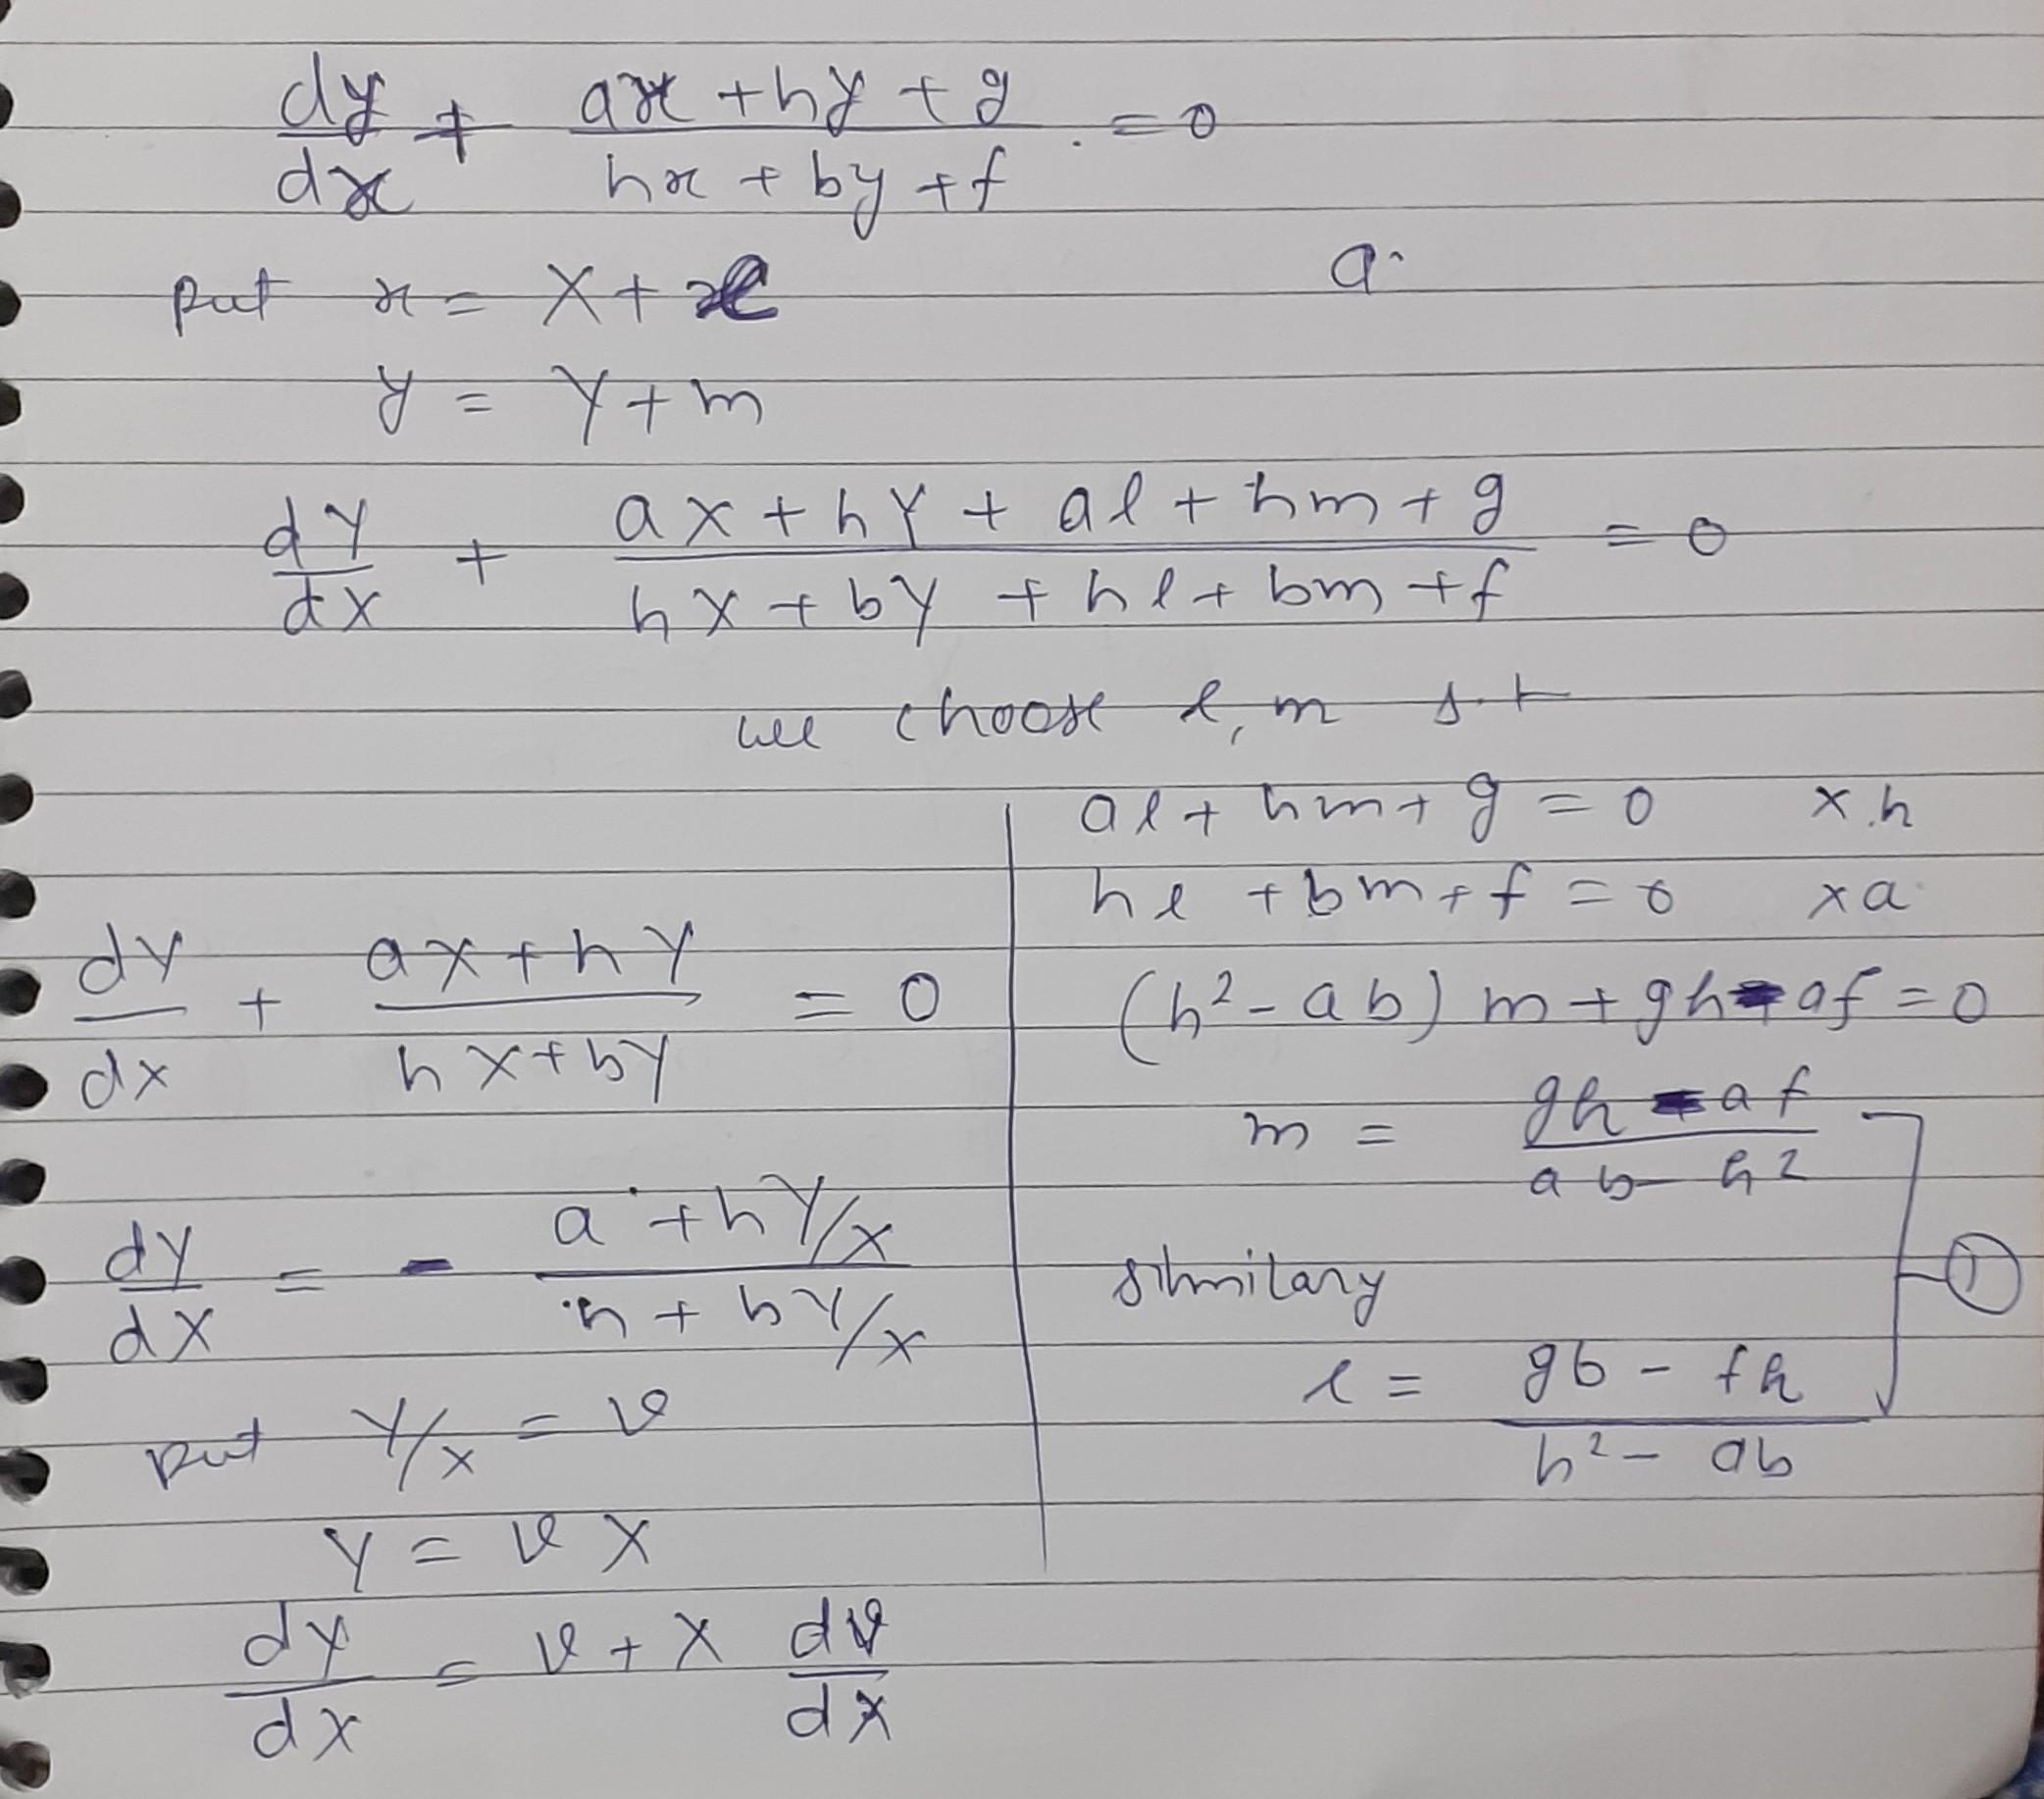 dy/dx + (ax + hy + g)/(hx + by + f) = 0
a
put x = X + l
y = Y + m
dY/dX + (aX + hY + al + hm + g)/(hX + bY + hl + bm + f) = 0
we choose l, m s.t
al + hm + g = 0 × h
hl + bm + f = 0 × a
(h² - ab) m + gh - af = 0
m = (gh - af)/(ab - h²)
similary
l = (gb - fh)/(h² - ab)
①
dY/dX + (aX + hY)/(hX + bY) = 0
dY/dX = - (a + hY/X)/(h + bY/X)
put Y/X = v
Y = vX
dY/dX = v + X dv/dX